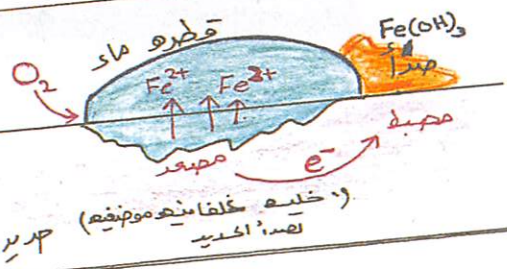 قطره ماء
Fe(OH)₃
صدأ
O₂
Fe²⁺ Fe³⁺
مصعد
e⁻
مهبط
(خليه غلفانيه موضعيه)
لصدأ الحديد
حديد